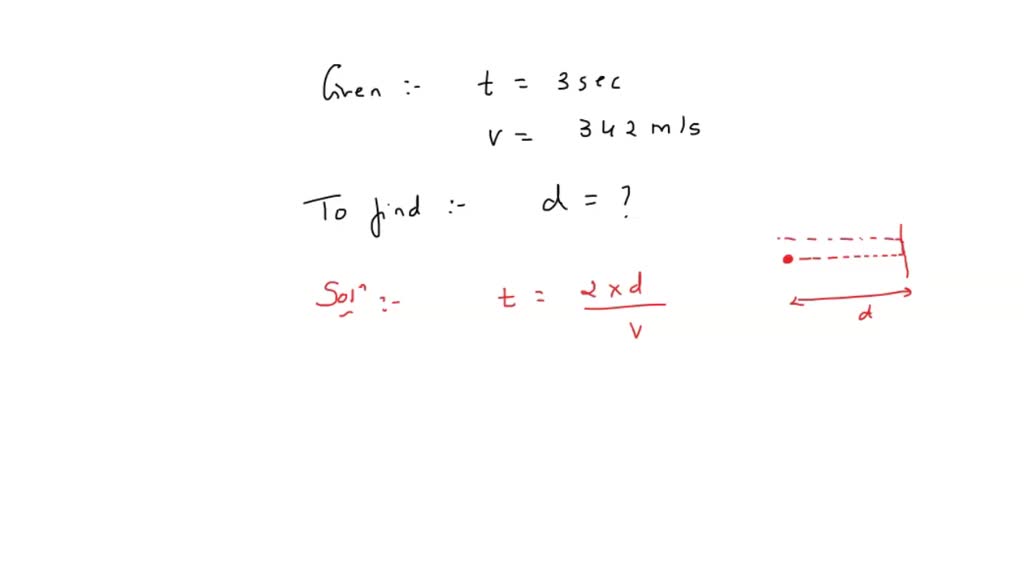 Given :- t = 3 sec
v = 342 m/s
To find :- d = ?
Solⁿ :- t = 2 x d
v
d